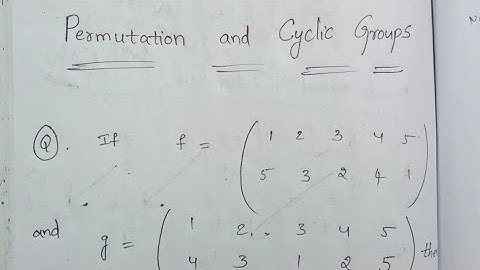 Permutation and Cyclic Groups
Q. If f = ( 1 2 3 4 5
5 3 2 4 1 )
and g = ( 1 2 3 4 5
4 3 1 2 5 )